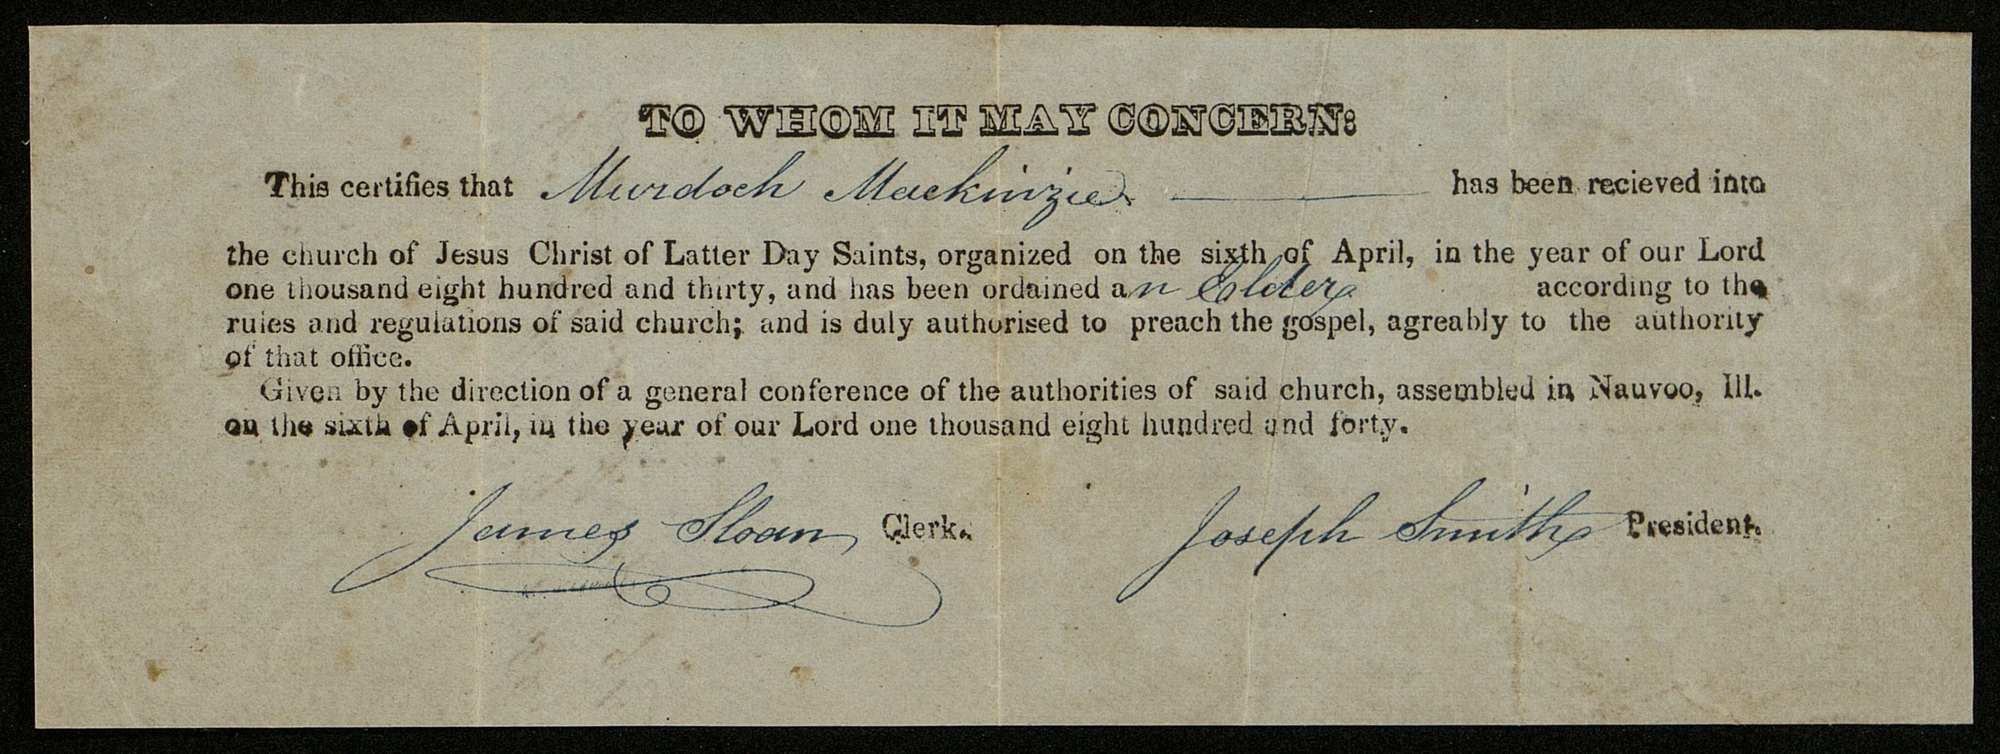 TO WHOM IT MAY CONCERN:
This certifies that Murdoch Mackinzie has been recieved into
the church of Jesus Christ of Latter Day Saints, organized on the sixth of April, in the year of our Lord
one thousand eight hundred and thirty, and has been ordained an Elder according to the
rules and regulations of said church; and is duly authorised to preach the gospel, agreably to the authority
of that office.
Given by the direction of a general conference of the authorities of said church, assembled in Nauvoo, Ill.
on the sixth of April, in the year of our Lord one thousand eight hundred and forty.
James Sloan, Clerk. Joseph Smith President.